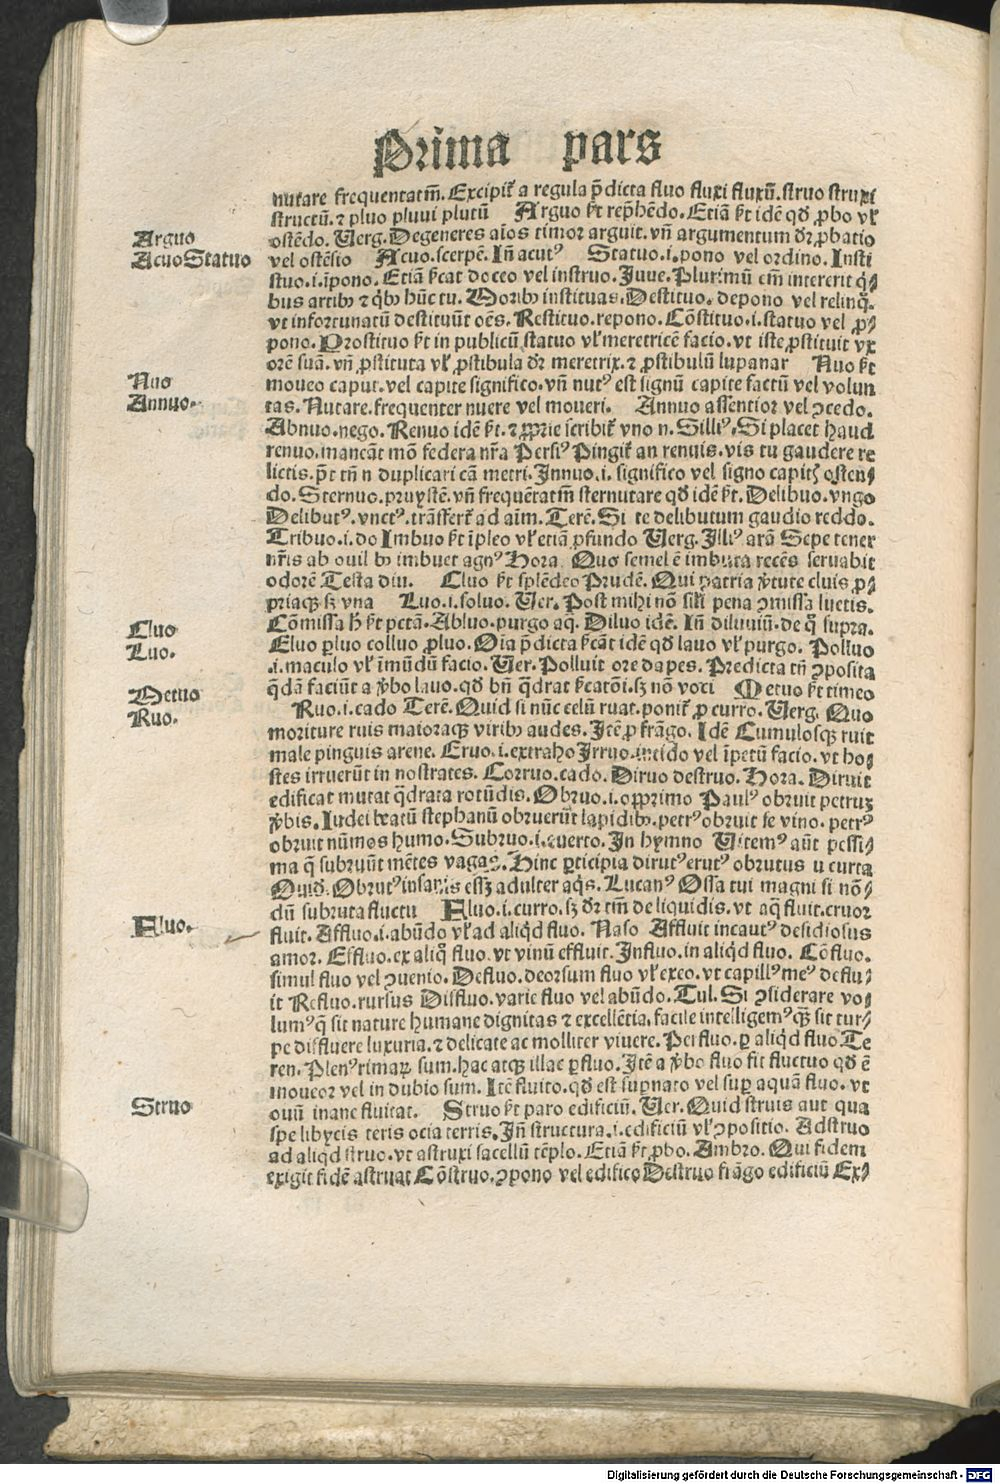 Prima pars
nutare frequentatm̄. Excipit᷑ a regula p̄dicta fluo fluxi fluxū. struo struxi
structū. ⁊ pluo pluui plutū Arguo ſt rep̄hēdo. Etiā ſt idē qđ ꝓbo vl̓
Arguo
ostēdo. Uerg. Degeneres aīos timor arguit. vn̄ argumentum dr̄ ꝓbatio
AcuoStatuo
vel ostēsio Acuo. Iñ acutꝰ Statuo .i. pono vel ordino. Insti
stuo .i. īpono. Etiā doceo vel instruo. Juue. Plurimū em̄ intererit q̇⸗
bus artibꝫ ⁊ q̇bꝫ hūc tu. Moribꝫ instituas. Destituo. depono vel relinq̄.
vt infortunatū destituūt oēs. Restituo. repono. Cōstituo .i. statuo vel ꝓ⸗
pono. Prostituo ſt in publicū statuo vl̓ meretricē facio. vt iste ꝓstituit vx
orē suā. vn̄ ꝓstituta vl̓ ꝓstibula dr̄ meretrix. ⁊ ꝓstibulū lupanar Nuo ſt
Nuo
moueo caput. vel capite significo. vn̄ nutꝰ est signū capite factū vel volun
Annuo.
tas. Nutare. frequenter nuere vel moueri. Annuo assentior vel ꝯcedo.
Abnuo. nego. Renuo idē ſt. ⁊ ꝓprie scribit᷑ vno n. Silliꝰ. Si placet haud
renuo. maneāt mō federa nr̄a Persiꝰ Pingit᷑ an renuis. vis tu gaudere re
lictis. p̄t tn̄ n duplicari cā metri. Innuo .i. significo vel signo capitꝭ osten⸗
do. Sternuo. vn̄ frequētatm̄ sternutare qđ idē ſt. Delibuo. vngo
Delibutꝰ. vnctꝰ. trāsfert᷑ ad aīm. Terē. Si te delibutum gaudio reddo.
Tribuo .i. do Imbuo ſt īpleo vl̓ etiā ꝑfundo Uerg. Illiꝰ arā Sepe tener
nr̄is ab ouilibꝫ imbuet agnꝰ Hora. Quo semel ē imbuta recēs seruabit
odorē Testa diu. Cluo ſt splēdeo Prudē. Qui patria v̓tute cluis ꝓ⸗
priaqꝫ sꝫ vna Luo .i. soluo. Uer. Post mihi nō sil̓i pena ꝯmissa luetis.
Cluo
Cōmissa h̄ ſt pctā. Abluo. purgo aq̄. Diluo idē. Iñ diluuiū. de q̊ supra.
Luo.
Eluo ꝑluo colluo ꝓluo. Oīa p̄dicta idē qđ lauo vl̓ purgo. Polluo
.i. maculo vl̓ īmūdū facio. Uer. Polluit ore dapes. Predicta tn̄ ꝯposita
Metuo
q̄dā faciūt a v̓bo lauo. qđ bn̄ q̄drat sꝫ nō voci Metuo ſt timeo
Ruo.
Ruo .i. cado Terē. Quid si nūc celū ruat. ponit᷑ ꝓ curro. Uerg. Quo
moriture ruis maioraqꝫ viribꝫ audes. Itē ꝓ frāgo. Idē Cumulosqꝫ ruit
male pinguis arene. Eruo .i. extraho Irruo. incido vel īpetū facio. vt ho⸗
stes irruerūt in nostrates. Corruo. cado. Diruo destruo. Hora. Diruit
edificat mutat q̄drata rotūdis. Obruo .i. opprimo Paulꝰ obruit petruꝫ
v̓bis. Iudei beatū stephanū obruerūt lapidibꝫ. petrꝰ obruit se vino. petrꝰ
obruit nūmos humo. Subruo .i. euerto. In hymno Uitemꝰ aūt pessi⸗
ma q̄ subruūt mētes vagas. Hinc ꝑticipia dirutꝰ erutꝰ obrutus u curta
Ouiđ. Obrutꝰ insanis essꝫ adulter aq̇s. Lucanꝰ Ossa tui magni si nō⸗
dū subruta fluctu Fluo .i. curro. sꝫ dr̄ tm̄ de liquidis. vt aq̄ fluit. cruor
Fluo.
fluit. Affluo .i. abūdo vl̓ ad aliqđ fluo. Naso Affluit incautꝰ desidiosus
amor. Effluo. ex aliq̊ fluo. vt vinū effluit. Influo. in aliqđ fluo. Cōfluo.
simul fluo vel ꝯuenio. Defluo. deorsum fluo vl̓ exeo. vt capillꝰ meꝰ deflu⸗
it Refluo. rursus Diffluo. varie fluo vel abūdo. Tul. Si ꝯsiderare vo⸗
lumꝰ q̄ sit nature humane dignitas ⁊ excellētia. facile intelligemꝰ qꝫ̄ sit tur⸗
pe diffluere luxuria. ⁊ delicate ac molliter viuere. Perfluo. ꝑ aliqđ fluo Te
ren. Plenꝰ rimaꝝ sum. hac atqꝫ illac ꝑfluo. Itē a v̓bo fluo fit fluctuo qđ ē
moueor vel in dubio sum. Itē fluito. qđ est supnato vel sup̱ aquā fluo. vt
Struo
ouū inane fluitat. Struo ſt paro edificiū. Uer. Quid struis aut qua
spe libycis teris ocia terris. Iñ structura .i. edificiū vl̓ ꝯpositio. Adstruo
ad aliqđ struo. vt astruxi sacellū tēplo. Etiā ſt ꝓbo. Ambro. Qui fidem
exigit fidē astruat Cōstruo. ꝯpono vel edifico Destruo frāgo edificiū Ex⸗
Digitalisierung gefördert durch die Deutsche Forschungsgemeinschaft - DFG